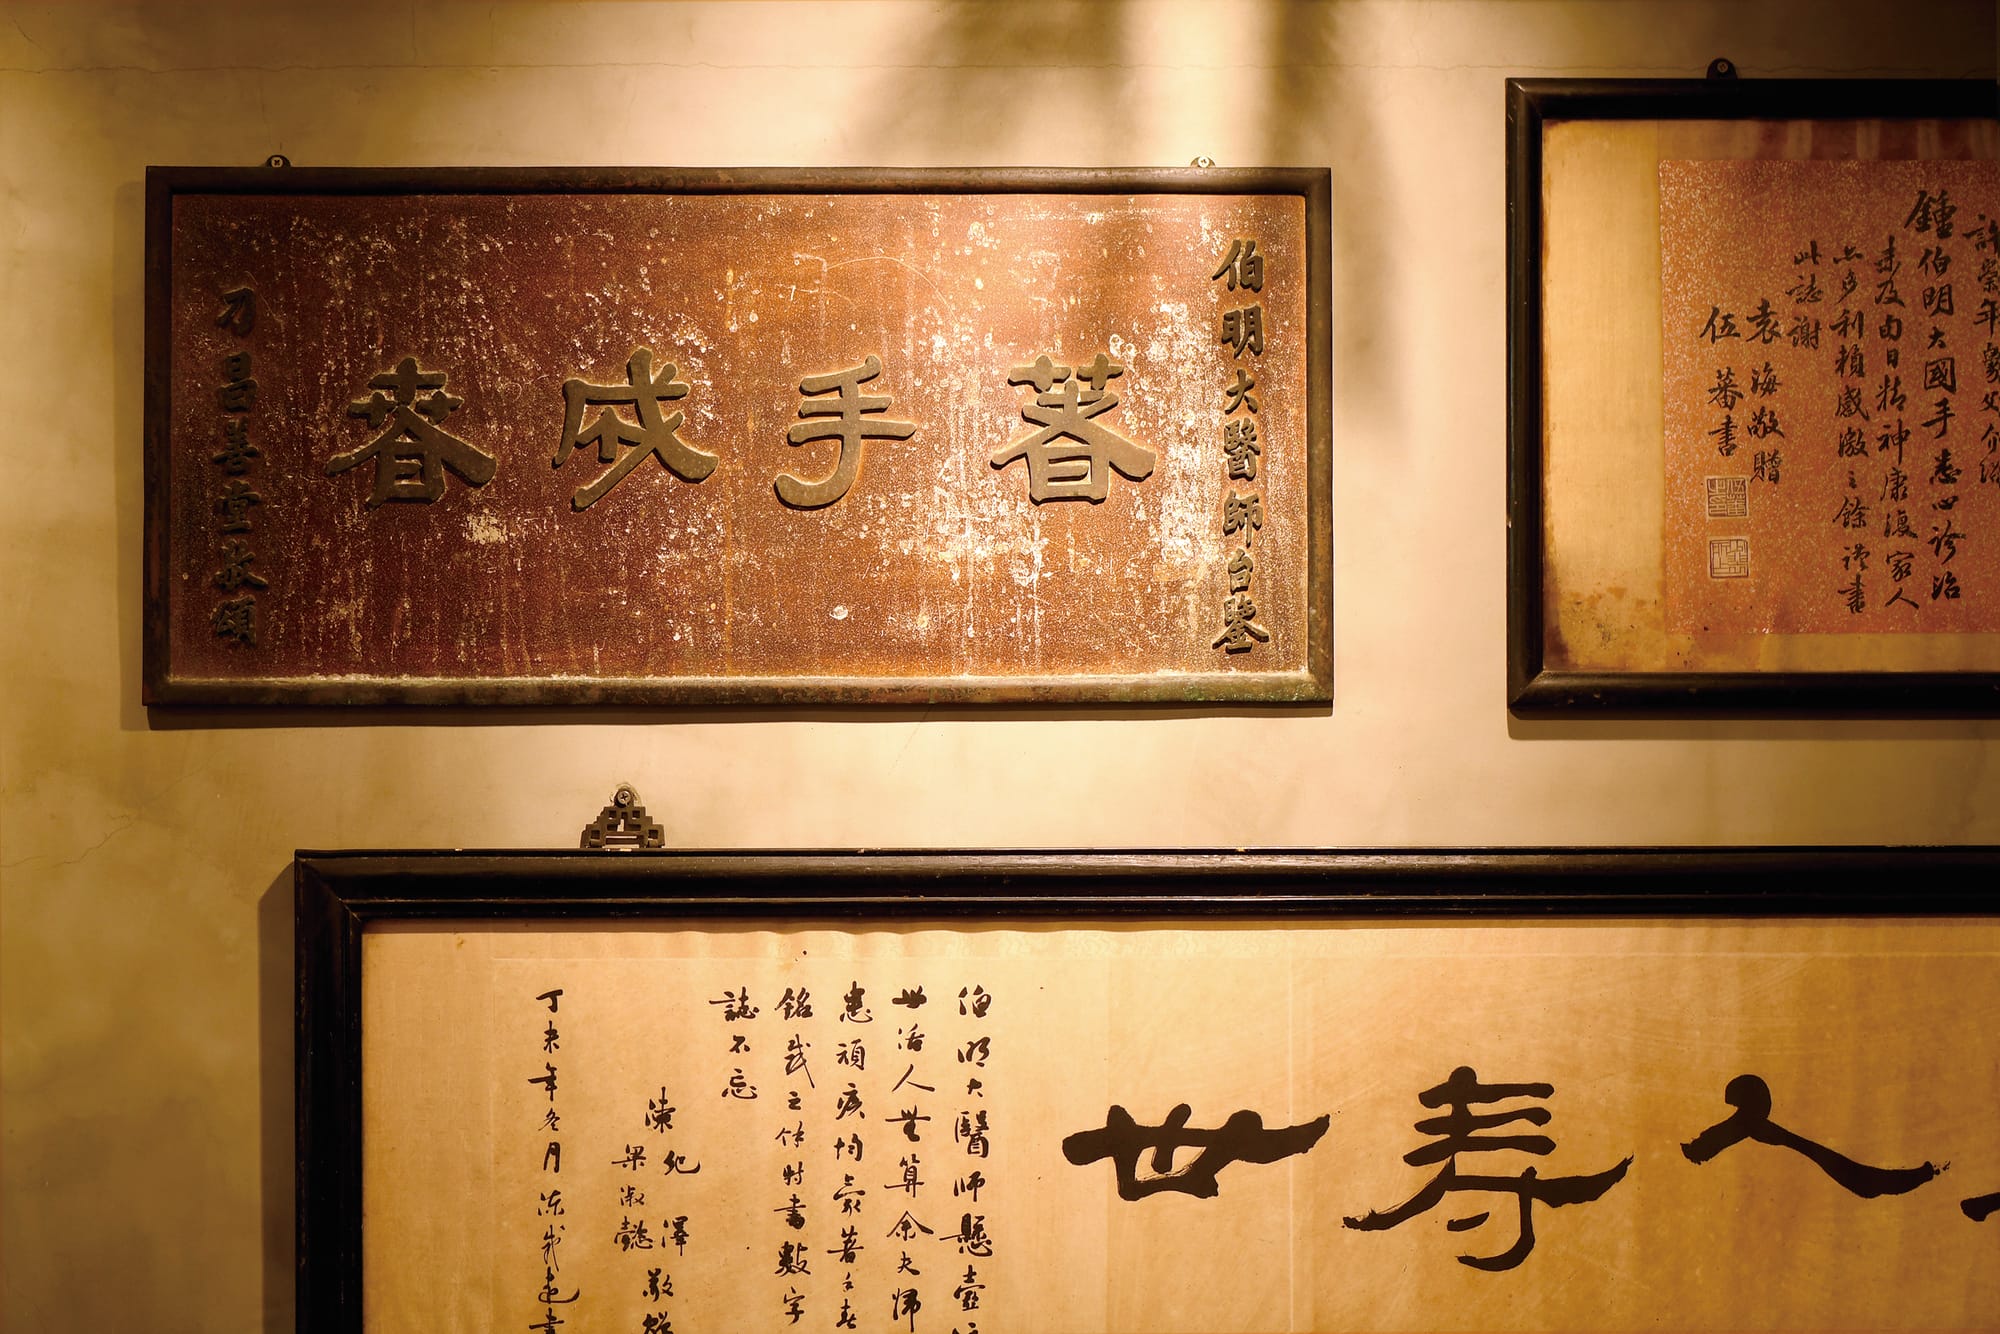 伯明大醫師台鑒
著手成春
刀昌善堂敬頌
鍾伯明大國手悉心診治
未及旬日精神康復家人
亦多利賴感激之餘謹書
此誌謝
袁海敬贈
伍蕃書
人壽世
伯明大醫師懸壺
世活人無算余夫婦
患頑疾均蒙著手春
銘感之餘特書數字
誌不忘
陳兆澤敬贈
梁淑懿
丁未年冬月陳我連書